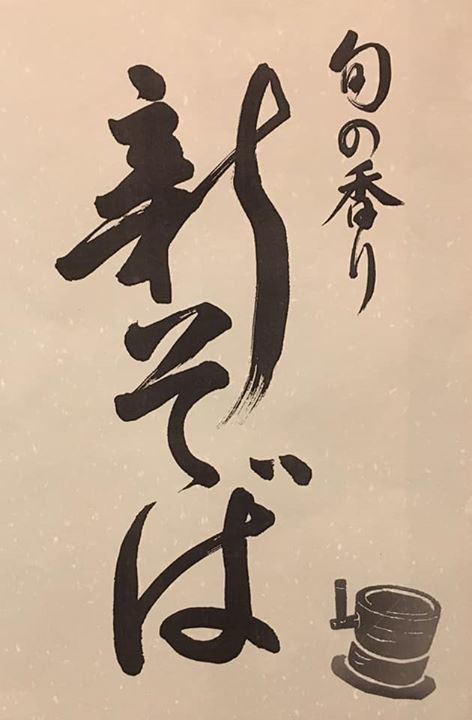 旬の香り
新そば